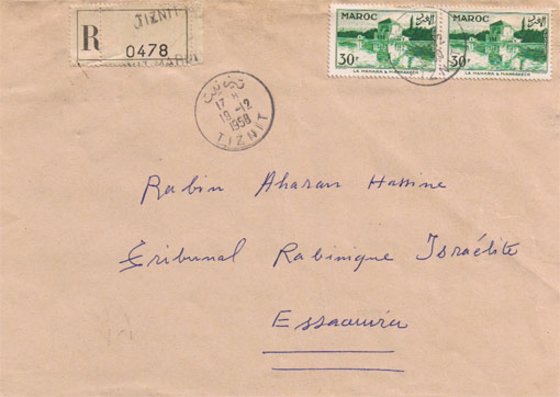 TIZNIT
R
0478
MAROC
30F
LA MENARA & MARRAKECH
MAROC
30F
LA MENARA & MARRAKECH
تيزنيت
17 H
19 -12
1958
TIZNIT
Rabin Aharan Hassine
Tribunal Rabinique Israélite
Essaouira